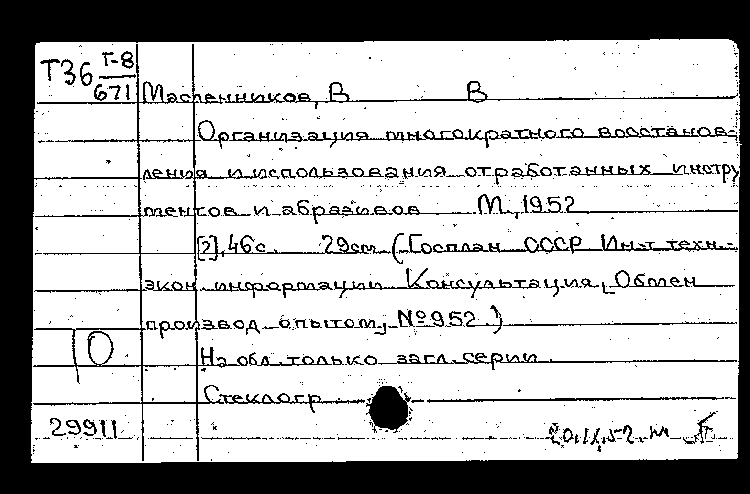 Т36 Т-8
671
Масленников, В В
Организация многократного восстанов-
ления и использования отработанных инстру
ментов и абразивов М., 1952
[2], 46 с. 29 см. (Госплан СССР Ин-т техн.-
экон. информации Консультация, Обмен
производ. опытом, № 952.)
На обл. только загл. серии.
Стеклогр.
10
29911